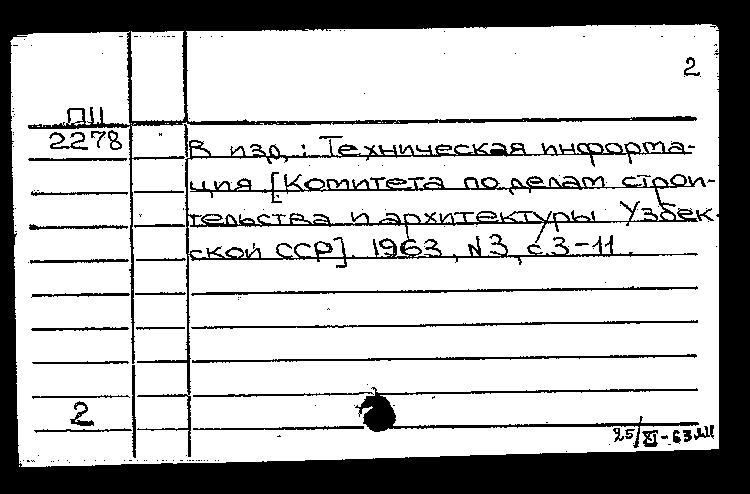 2
П11
2278
В изд.: Техническая информа-
ция [Комитета по делам строи-
тельства и архитектуры Узбек-
ской ССР]. 1963, N3, с.3-11.
2
25/XI-63